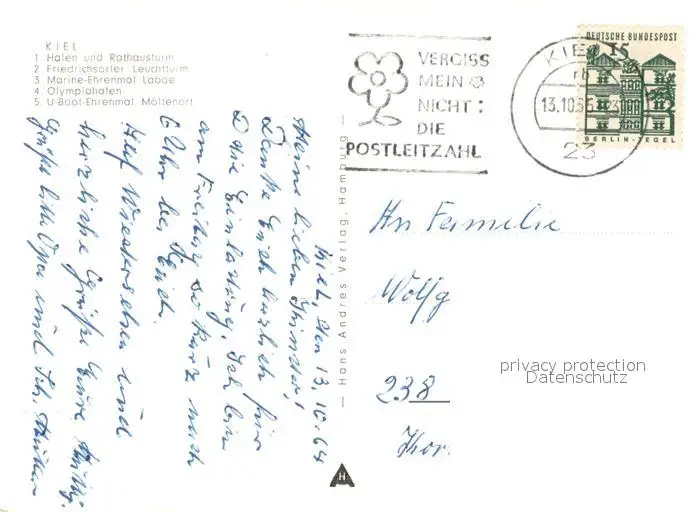 KIEL
1 Hafen und Rathausturm
2 Friedrichsorter Leuchtturm
3 Marine-Ehrenmal Laboe
4 Olympiahafen
5. U-Boot-Ehrenmal Möltenort
VERGISS
MEIN
NICHT:
DIE
POSTLEITZAHL
KIEL
13.10.65
23
DEUTSCHE BUNDESPOST
15
BERLIN-TEGEL
Kiel, den 13.10.64
Meine lieben Kinder!
Danke Euch herzlich für
die Einladung. Ich bin
am Freitag so kurz nach
6 Uhr bei Euch.
Auf Wiedersehen und
herzliche Grüße Eure
Grüße bitte Opa und
— Hans Andres Verlag, Hamburg —
H
An Familie
Wolfg
238
privacy protection
Datenschutz